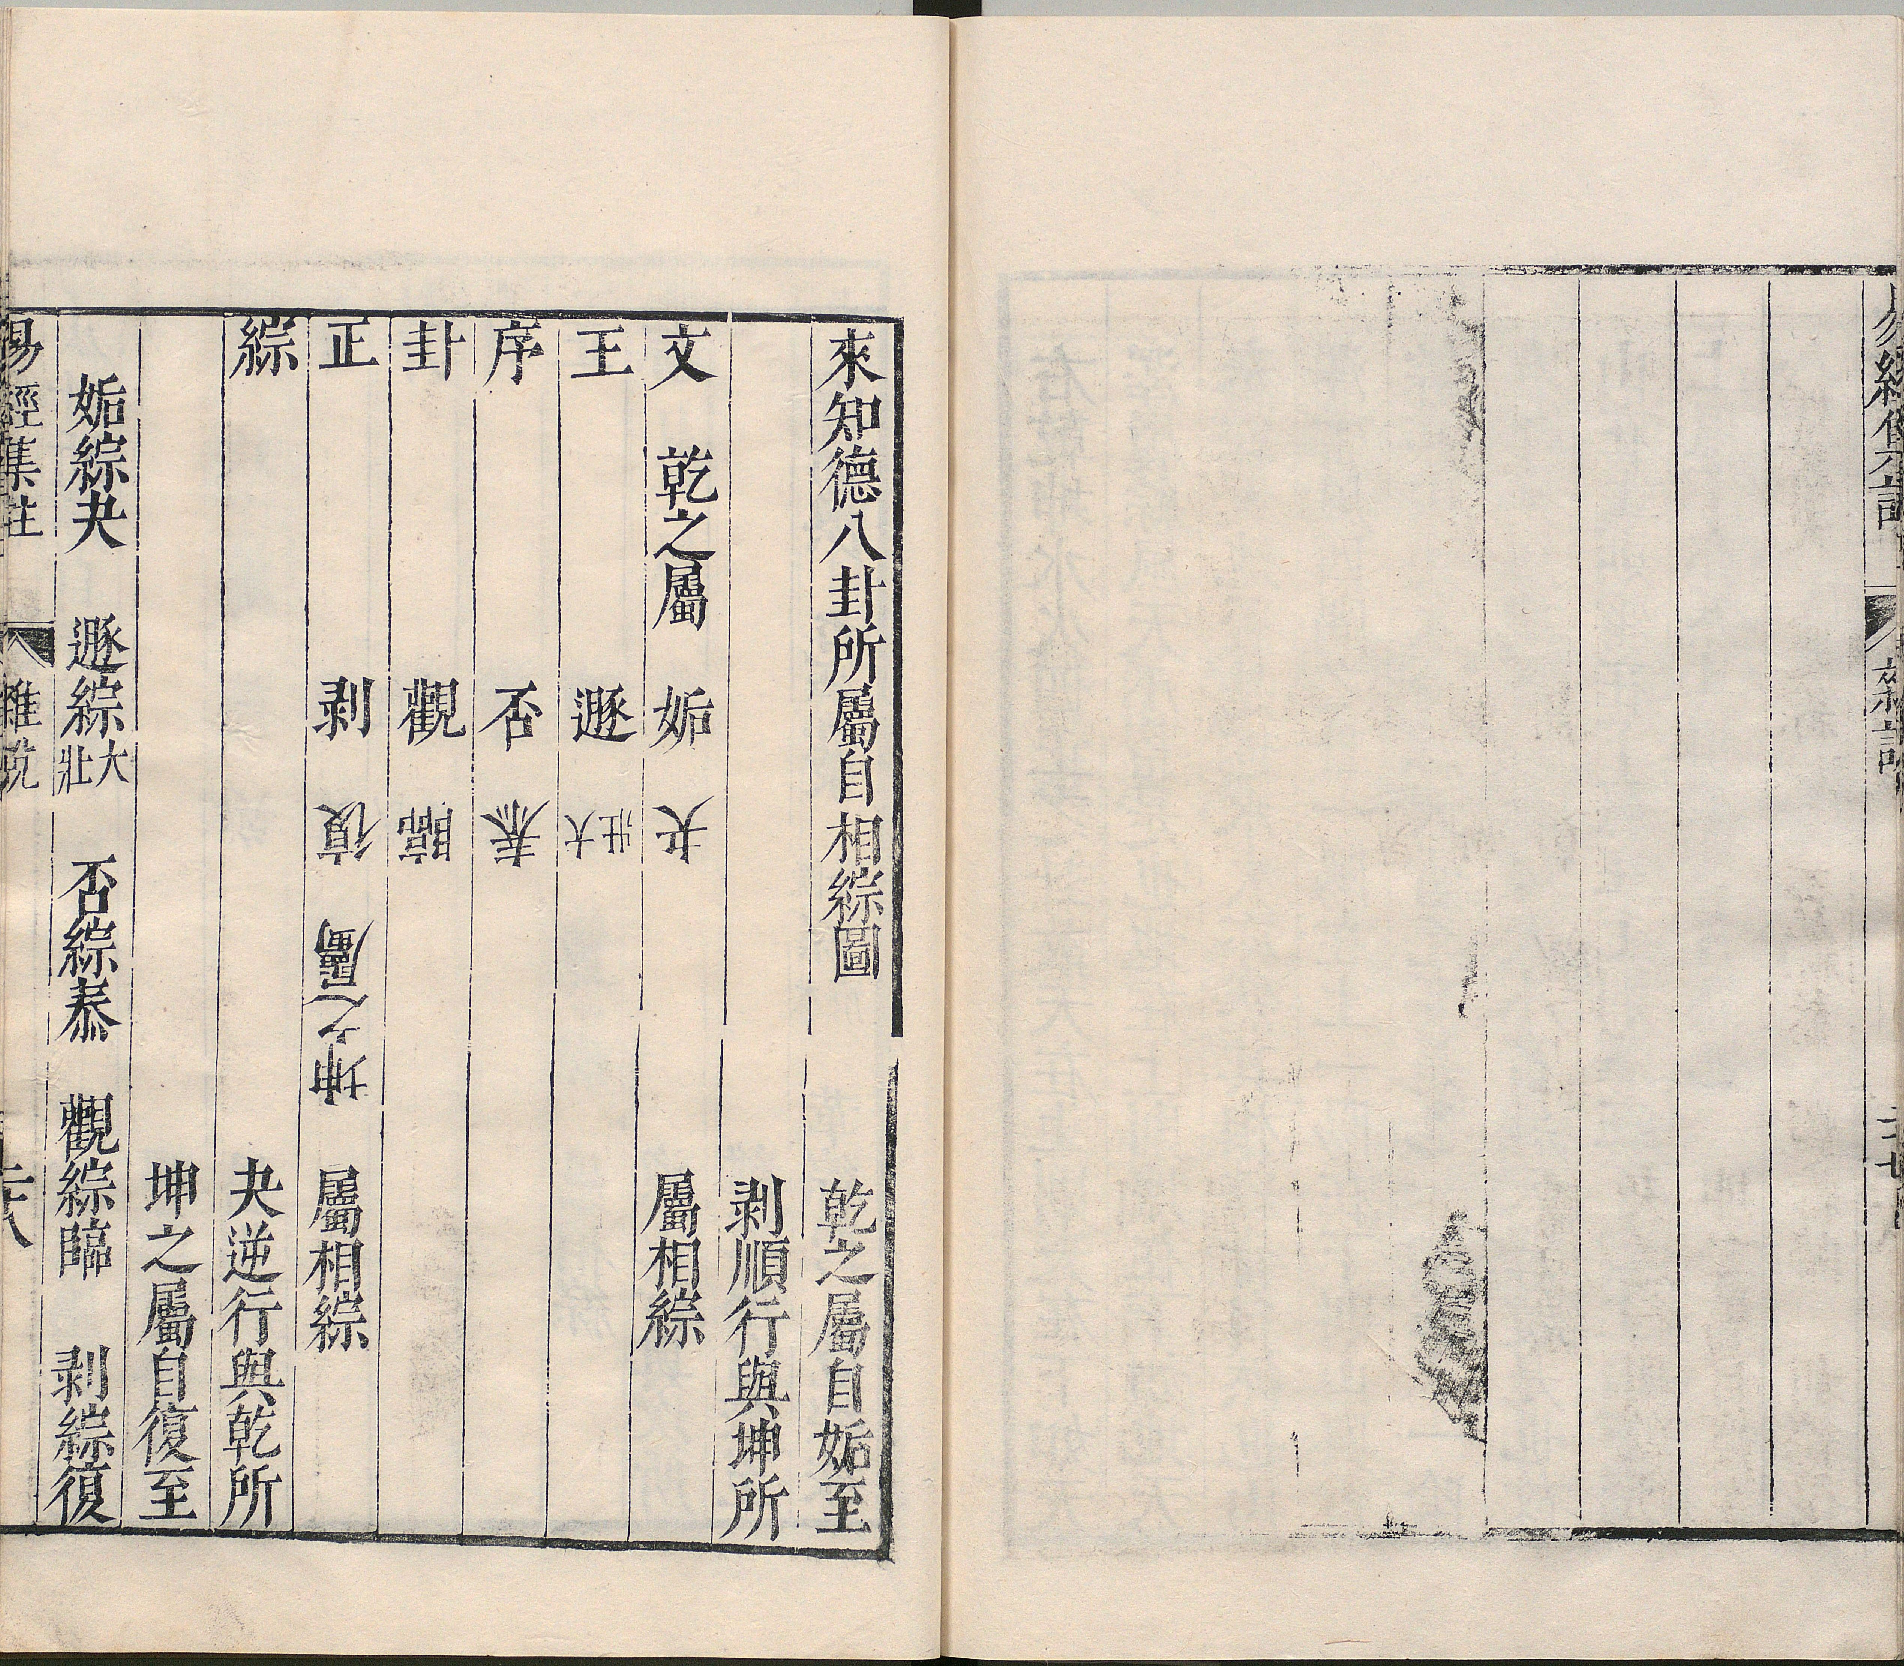 易經集註 雜說
來知德八卦所屬自相綜圖 乾之屬自姤至
剥順行與坤所
文 乾之屬 姤 夬 屬相綜
王 遯 大壯
序 否 泰
卦 觀 臨
正 剥 復 坤之屬 屬相綜
綜 夬逆行與乾所
坤之屬自復至
姤綜夬 遯綜大壯 否綜泰 觀綜臨 剥綜復
易經集註 雜說 二十八